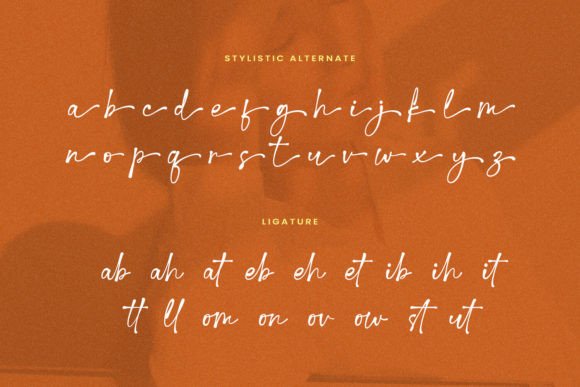 STYLISTIC ALTERNATE
a b c d e f g h i j k l m
n o p q r s t u v w x y z
LIGATURE
ab ah at eb eh et ib ih it
tt ll om on ov ow st ut